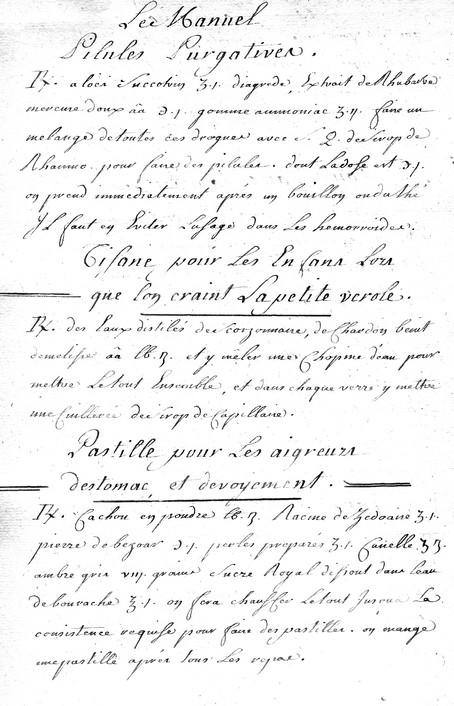 Le Manuel
Pilules Purgatives.
℞. aloës Succotrin ʒ.1. diagrede, Extrait de Rhubarbe
mercure doux āā ℈.1. gomme ammoniac ʒ.ıı. faire un
mélange de toutes ces drogues avec S. Q. de Sirop de
Rhamno. pour faire des pilules. dont La dose est ℈1.
on prend immédietement après un bouillon ou du thé
Il faut en Eviter Lusage dans Les hemorroides.
Tisane pour Les Enfans Lors
que lon craint La petite verole.
℞. des Eaux distilés de Scorzonnaire, de Chardon benit
de melisse āā lb.ß. et y mêler une Chopine d'eau pour
mettre Le tout Ensemble, et dans chaque verre y mettre
une Cuillerée de Sirop de Capillaire.
Pastille pour Les aigreurs
destomac et devoyement.
℞. Cachou en poudre lb.ß. Racine de Zedoaire ʒ.1.
pierre de bezoar ℈.1. perles preparés ʒ.1. Canelle ʒß
ambre gris vııı. grains Sucre Royal dissout dans Leau
de bourache ʒ.1. on fera chauffer Le tout Jusqua La
consistence requise pour faire des pastilles. on mange
une pastille après tous Les repas.